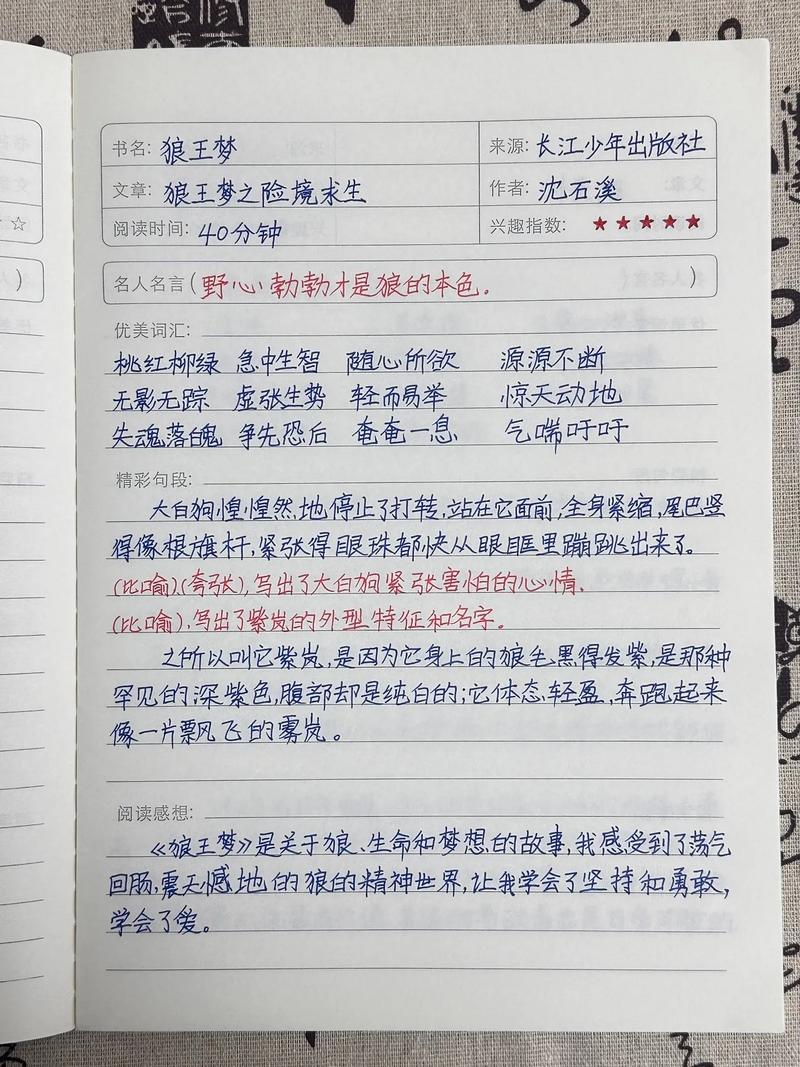 书名: 狼王梦 来源: 长江少年出版社
文章: 狼王梦之险境求生 作者: 沈石溪
阅读时间: 40分钟 兴趣指数: ★★★★★
名人名言(野心勃勃才是狼的本色.)
优美词汇:
桃红柳绿 急中生智 随心所欲 源源不断
无影无踪 虚张生势 轻而易举 惊天动地
失魂落魄 争先恐后 奄奄一息 气喘吁吁
精彩句段:
大白狗惶惶然,地停止了打转,站在它面前,全身紧缩,尾巴竖
得像根旗杆,紧张得眼珠都快从眼眶里蹦跳出来了。
(比喻)、(夸张),写出了大白狗紧张害怕的心情.
(比喻).写出了紫岚的外型特征和名字.
之所以叫它紫岚,是因为它身上的狼毛黑得发紫,是那种
罕见的深紫色,腹部却是纯白的;它体态轻盈,奔跑起来
像一片飘飞的雾岚。
阅读感想:
《狼王梦》是关于狼、生命和梦想的故事,我感受到了荡气
回肠,震天憾地的狼的精神世界,让我学会了坚持和勇敢,
学会了爱。